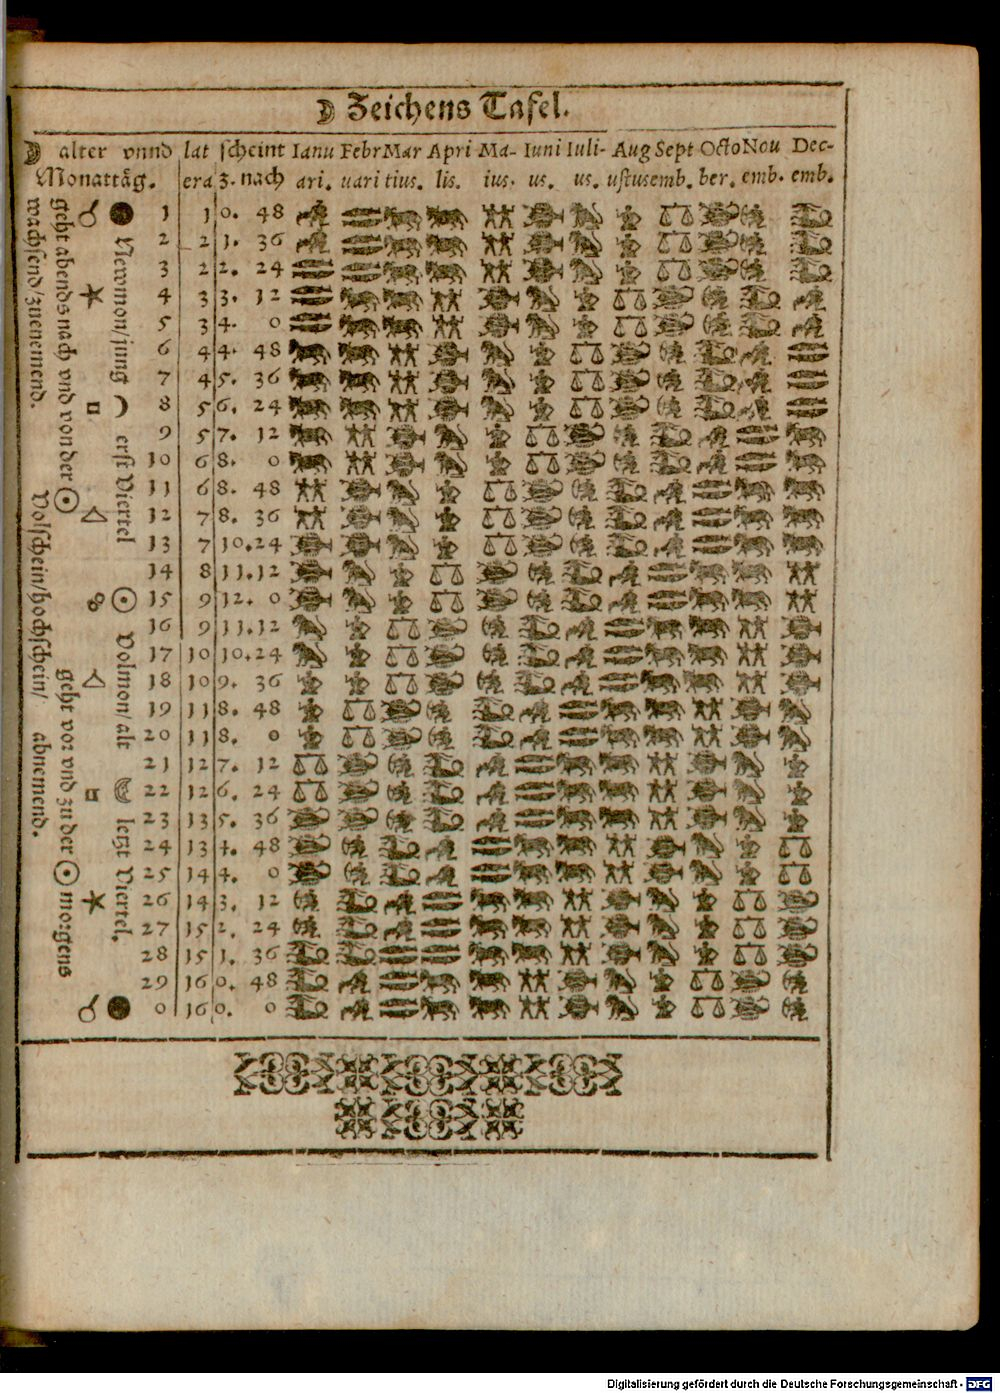 ☽ Zeichens Tafel.
☽ alter vnnd lat scheint Ianu Febr Mar Apri Ma- Iuni Iuli- Aug Sept Octo Nou Dec-
Monattäg. era z. nach ari. uari tius. lis. ius. us. us. ustus emb. ber. emb. emb.
1 1 0. 48
2 2 1. 36
3 2 2. 24
4 3 3. 12
5 3 4. 0
6 4 4. 48
7 4 5. 36
8 5 6. 24
9 5 7. 12
10 6 8. 0
11 6 8. 48
12 7 8. 36
13 7 10. 24
14 8 11. 12
15 9 12. 0
16 9 11. 12
17 10 10. 24
18 10 9. 36
19 11 8. 48
20 11 8. 0
21 12 7. 12
22 12 6. 24
23 13 5. 36
24 13 4. 48
25 14 4. 0
26 14 3. 12
27 15 2. 24
28 15 1. 36
29 16 0. 48
0 16 0. 0
Newmon/jung ☽ erst Viertel ☉ Volmon/alt ☾ letzt Viertel.
☌ ✶ □ △ ☍ △ □ ✶ ☌
geht abends nach vnd von der ☉ geht vor vnd zu der ☉ morgens
wachsend/zuenemend. Volschein/hochschein/ abnemend.
Digitalisierung gefördert durch die Deutsche Forschungsgemeinschaft - DFG